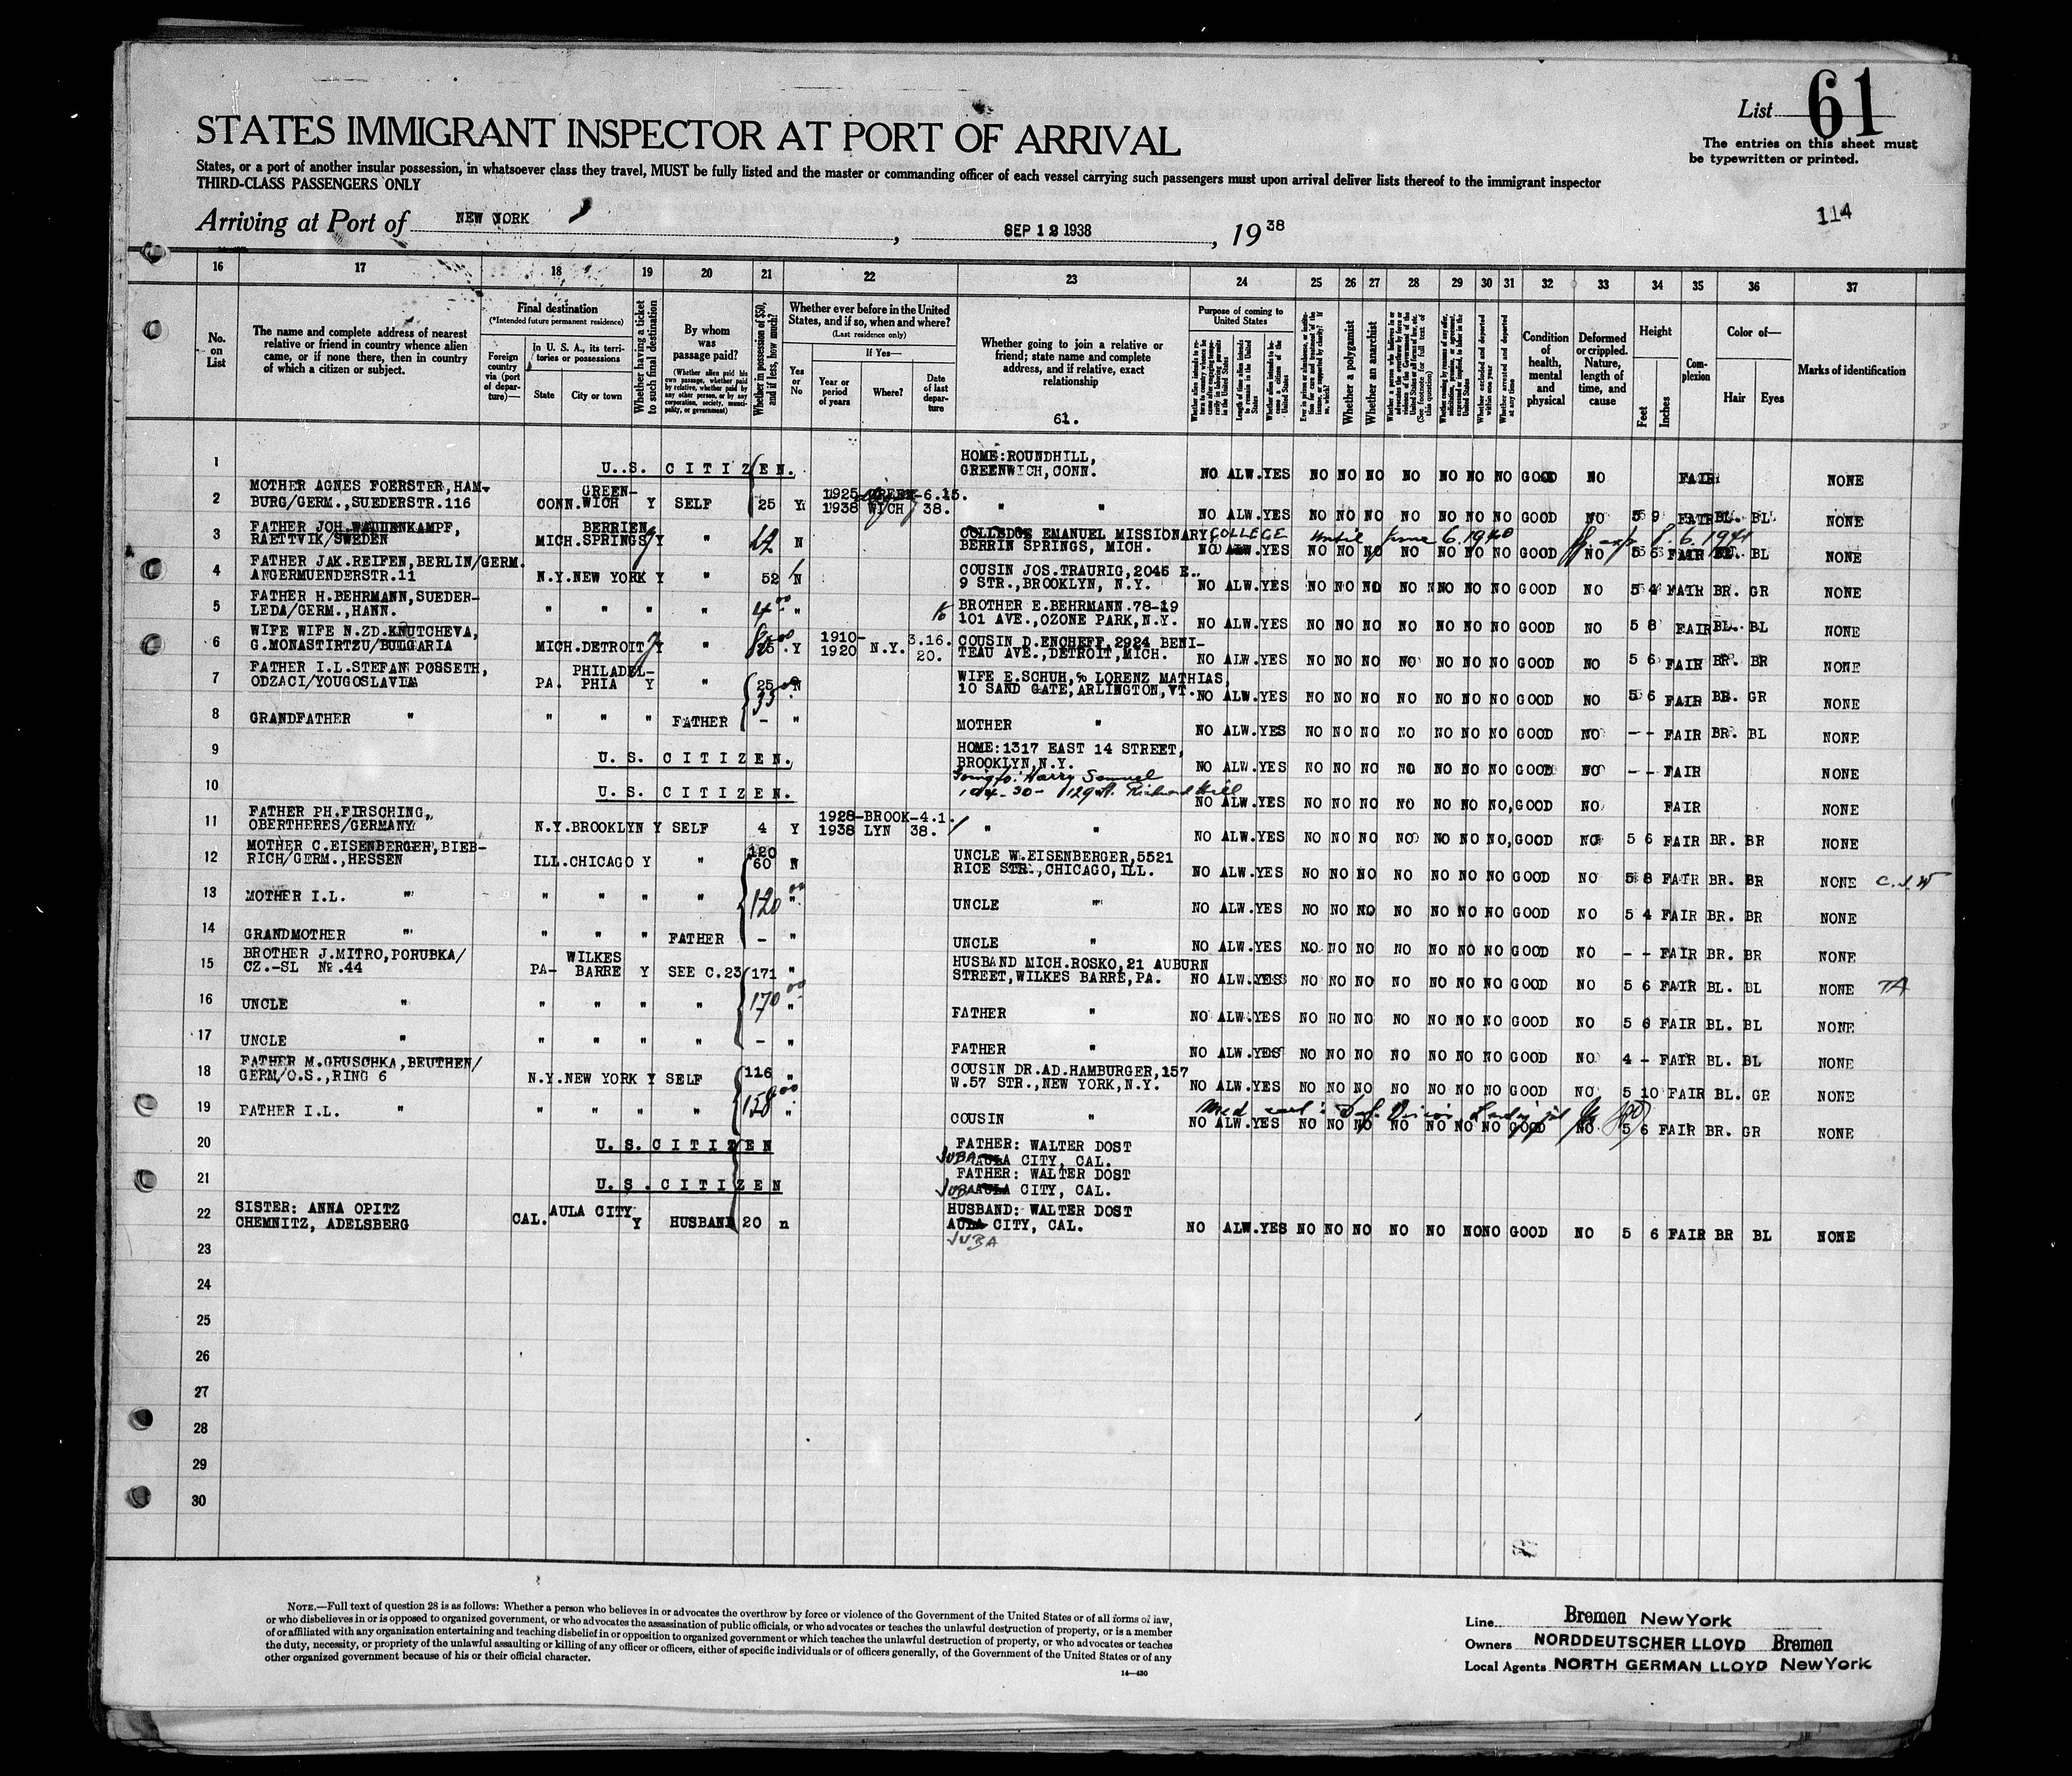 List 61
The entries on this sheet must
be typewritten or printed.
STATES IMMIGRANT INSPECTOR AT PORT OF ARRIVAL
States, or a port of another insular possession, in whatsoever class they travel, MUST be fully listed and the master or commanding officer of each vessel carrying such passengers must upon arrival deliver lists thereof to the immigrant inspector
THIRD-CLASS PASSENGERS ONLY
114
Arriving at Port of NEW YORK, SEP 12 1938, 19 38
16 17 18 19 20 21 22 23 24 25 26 27 28 29 30 31 32 33 34 35 36 37
No. on List
The name and complete address of nearest
relative or friend in country whence alien
came, or if none there, then in country
of which a citizen or subject.
Final destination
(*Intended future permanent residence)
Foreign country via (port of departure)—
In U. S. A., its territories or possessions
State
City or town
Whether having a ticket to such final destination
By whom was passage paid?
(Whether alien paid his own passage, whether paid by relative, whether paid by any other person, or by any corporation, society, municipality, or government)
Whether in possession of $50, and if less, how much?
Whether ever before in the United States, and if so, when and where?
(Last residence only)
Yes or No
If Yes—
Year or period of years
Where?
Date of last departure
Whether going to join a relative or
friend; state name and complete
address, and if relative, exact
relationship
61.
Purpose of coming to United States
Length of time alien intends to remain in the United States
Whether alien intends to become a citizen of the United States
Whether a polygamist
Whether an anarchist
(See footnote for full text of this question)
Whether excluded and deported within one year
Whether arrested and deported at any time
Condition of health, mental and physical
Deformed or crippled. Nature, length of time, and cause
Height
Feet
Inches
Complexion
Color of—
Hair
Eyes
Marks of identification
1 U. S. CITIZEN. HOME:ROUNDHILL,
GREENWICH, CONN. NO ALW.YES NO NO NO NO NO NO NO GOOD NO FAIR NONE
2 MOTHER AGNES FOERSTER,HAM-
BURG/GERM.,SUEDERSTR.116 CONN. GREEN-WICH Y SELF 25 Y 1925-1938 GREEN-WICH 6.15.38. " " NO ALW.YES NO NO NO NO NO NO NO GOOD NO 5 9 FAIR BL. BL NONE
3 FATHER JOH. WADDENKAMPF,
RAETTVIK/SWEDEN MICH. BERRIEN SPRINGS Y " N COLLEDGE EMANUEL MISSIONARY COLLEGE
BERRIN SPRINGS, MICH. until June 6. 1940 NO YES NO NO NO NO NO NO NO GOOD NO 5 6 FAIR BL. BL NONE
4 FATHER JAK.REIFEN,BERLIN/GERM.
ANGERMUENDERSTR.11 N.Y. NEW YORK Y " 52 N COUSIN JOS.TRAURIG,2045 E.
9 STR.,BROOKLYN, N.Y. NO ALW.YES NO NO NO NO NO NO NO GOOD NO 5 4 FAIR BR. GR NONE
5 FATHER H.BEHRMANN,SUEDER-
LEDA/GERM.,HANN. " " " " 4 00 " BROTHER E.BEHRMANN.78-19
101 AVE.,OZONE PARK,N.Y. NO ALW.YES NO NO NO NO NO NO NO GOOD NO 5 8 FAIR BL. BL NONE
6 WIFE WIFE N.ZD.KNUTCHEVA,
G.MONASTIRTZU/BULGARIA MICH. DETROIT Y " Y 1910-1920 N.Y. 3.16.20. COUSIN D.ENCHEFF,2924 BENI-
TEAU AVE.,DETROIT,MICH. NO ALW.YES NO NO NO NO NO NO NO GOOD NO 5 6 FAIR BR. BR NONE
7 FATHER I.L.STEFAN POSSETH,
ODZACI/YOUGOSLAVIA PA. PHILADEL-PHIA Y " 25 N WIFE E.SCHUH,% LORENZ MATHIAS,
10 SAND GATE,ARLINGTON,VT. NO ALW.YES NO NO NO NO NO NO NO GOOD NO 5 6 FAIR BR. GR NONE
8 GRANDFATHER " " " " FATHER - " MOTHER " NO ALW.YES NO NO NO NO NO NO NO GOOD NO - - FAIR BR. BL NONE
9 U. S. CITIZEN. HOME:1317 EAST 14 STREET,
BROOKLYN,N.Y. NO ALW.YES NO NO NO NO NO NO NO GOOD NO - - FAIR NONE
10 U. S. CITIZEN. Going to: Harry Samuel
104-30- 129 St. Richmond Hill NO ALW.YES NO NO NO NO NO NO NO,GOOD NO FAIR NONE
11 FATHER PH.FIRSCHING,
OBERTHERES/GERMANY N.Y. BROOKLYN Y SELF 4 Y 1928-1938 BROOK-LYN 4.1.38. " " NO ALW.YES NO NO NO NO NO NO NO,GOOD NO 5 6 FAIR BR. BR NONE
12 MOTHER C.EISENBERGER,BIEB-
RICH/GERM.,HESSEN ILL. CHICAGO Y " 120 60 N UNCLE W.EISENBERGER,5521
RICE STR.,CHICAGO,ILL. NO ALW.YES NO NO NO NO NO NO NO GOOD NO 5 8 FAIR BR. BR NONE
13 MOTHER I.L. " " " " " 120 00 " UNCLE " NO ALW.YES NO NO NO NO NO NO NO GOOD NO 5 4 FAIR BR. BR NONE
14 GRANDMOTHER " " " " FATHER - " UNCLE " NO ALW.YES NO NO NO NO NO NO NO GOOD NO - - FAIR BR. BR NONE
15 BROTHER J.MITRO,PORUBKA/
CZ.-SL №.44 PA- WILKES BARRE Y SEE C.23 171 " HUSBAND MICH.ROSKO,21 AUBURN
STREET,WILKES BARRE,PA. NO ALW.YES NO NO NO NO NO NO NO GOOD NO 5 6 FAIR BL. BL NONE
16 UNCLE " " " " " 170 00 " FATHER " NO ALW.YES NO NO NO NO NO NO NO GOOD NO 5 6 FAIR BL. BL NONE
17 UNCLE " " " " " - " FATHER " NO ALW.YES NO NO NO NO NO NO NO GOOD NO 4 - FAIR BL. BL NONE
18 FATHER M.GRUSCHKA,BEUTHEN/
GERM/O.S.,RING 6 N.Y. NEW YORK Y SELF 116 " COUSIN DR.AD.HAMBURGER,157
W.57 STR.,NEW YORK,N.Y. NO ALW.YES NO NO NO NO NO NO NO GOOD NO 5 10 FAIR BL. GR NONE
19 FATHER I.L. " " " " " 158 00 " COUSIN " NO ALW.YES NO NO NO NO NO NO NO GOOD NO 5 6 FAIR BR. GR NONE
20 U.S.CITIZEN FATHER: WALTER DOST
JUBA CITY, CAL.
21 U.S.CITIZEN FATHER: WALTER DOST
JUBA CITY, CAL.
22 SISTER: ANNA OPITZ
CHEMNITZ, ADELSBERG CAL. AULA CITY Y HUSBAND 20 n HUSBAND: WALTER DOST
AULA CITY, CAL. NO ALW.YES NO NO NO NO NO NO NO GOOD NO 5 6 FAIR BR BL NONE
JUBA
23
24
25
26
27
28
29
30
NOTE.—Full text of question 28 is as follows: Whether a person who believes in or advocates the overthrow by force or violence of the Government of the United States or of all forms of law,
or who disbelieves in or is opposed to organized government, or who advocates the assassination of public officials, or who advocates or teaches the unlawful destruction of property, or is a member
of or affiliated with any organization entertaining and teaching disbelief in or opposition to organized government or which teaches the unlawful destruction of property, or who advocates or teaches
the duty, necessity, or propriety of the unlawful assaulting or killing of any officer or officers, either of specific individuals or of officers generally, of the Government of the United States or of any
other organized government because of his or their official character.
14—430
Line Bremen NewYork
Owners NORDDEUTSCHER LLOYD Bremen
Local Agents NORTH GERMAN LLOYD NewYork